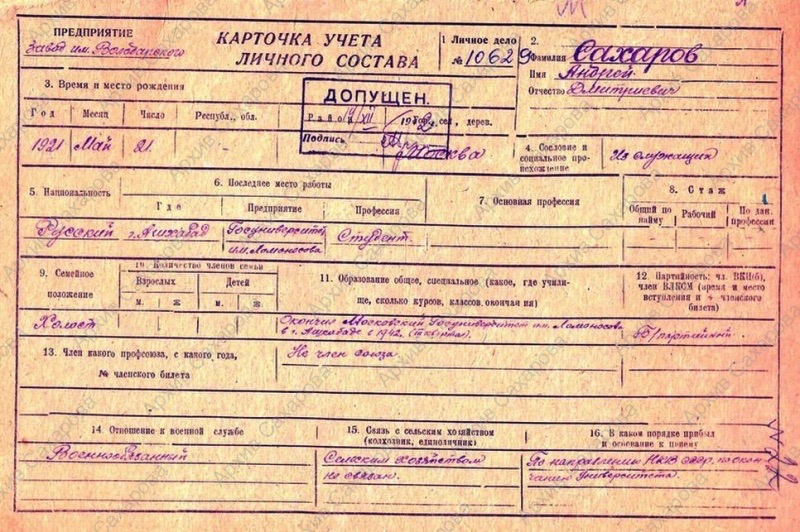 ПРЕДПРИЯТИЕ
Завод им. Володарского
КАРТОЧКА УЧЕТА
ЛИЧНОГО СОСТАВА
1 Личное дело
№ 10629
2.
Фамилия Сахаров
Имя Андрей
Отчество Дмитриевич
3. Время и место рождения
Год Месяц Число Республ., обл. Район, гор., сел, дерев.
1921 Май 21. - Москва
ДОПУЩЕН.
XII
Подпись
4. Сословие и
социальное про-
исхождение
Из служащих
5. Национальность
6. Последнее место работы
Где Предприятие Профессия
7. Основная профессия
8. Стаж
Общий по найму Рабочий По дан. профессии
Русский г. Ашхабад Госуниверситет Студент.
им. Ломоносова
9. Семейное
положение
10. Количество членов семьи
Взрослых Детей
м. ж м. ж
11. Образование общее, специальное (какое, где учили-
ще, сколько курсов, классов, окончания)
12. Партийность: чл. ВКП(б),
член ВЛКСМ (время и место
вступления и № членского
билета)
Холост
Окончил Московский Госуниверситет им. Ломоносова
в г. Ашхабаде в 1942.
Б/партийный
13. Член какого профсоюза, с какого года,
№ членского билета
Не член союза.
14. Отношение к военной службе
15. Связь с сельским хозяйством
(колхозник, единоличник)
16. В каком порядке прибыл
и основание к приему
Военнообязанный
Сельским хозяйством
не связан.
По направлению НКВ СССР по окон-
чании Университета.
Архив Сахарова